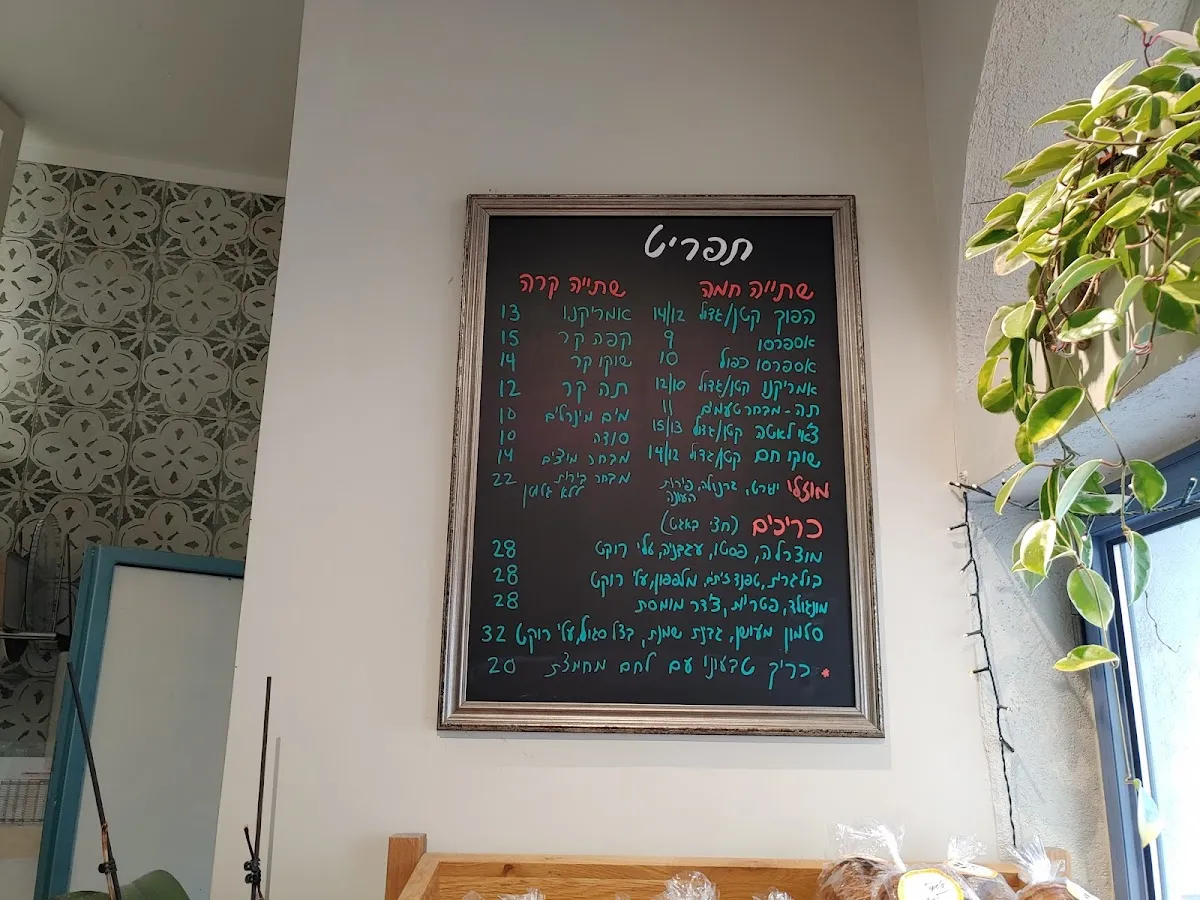 תפריט
שתייה חמה
הפוך קטן/גדול 14/12
אספרסו 9
אספרסו כפול 10
אמריקנו קטן/גדול 12/10
תה - מבחר טעמים 11
צ'אי לאטה קטן/גדול 15/13
שוקו חם קטן/גדול 14/12
מוזלי יוגורט, גרנולה, פירות העונה
שתייה קרה
אמריקנו 13
קפה קר 15
שוקו קר 14
תה קר 12
מים מינרלים 10
סודה 10
מבחר מיצים 14
מבחר בירות 22
ללא גלוטן
כריכים (חצי באגט)
מוצרלה, פסטו, עגבניה, עלי רוקט 28
בולגרית, טפנד זיתים, מלפפון, עלי רוקט 28
מנגולד, פטריות, צ'דר מומסת 28
סלמון מעושן, גבנת שמנת, בצל סגול, עלי רוקט 32
* כריך טבעוני עם לחם מחמצת 20